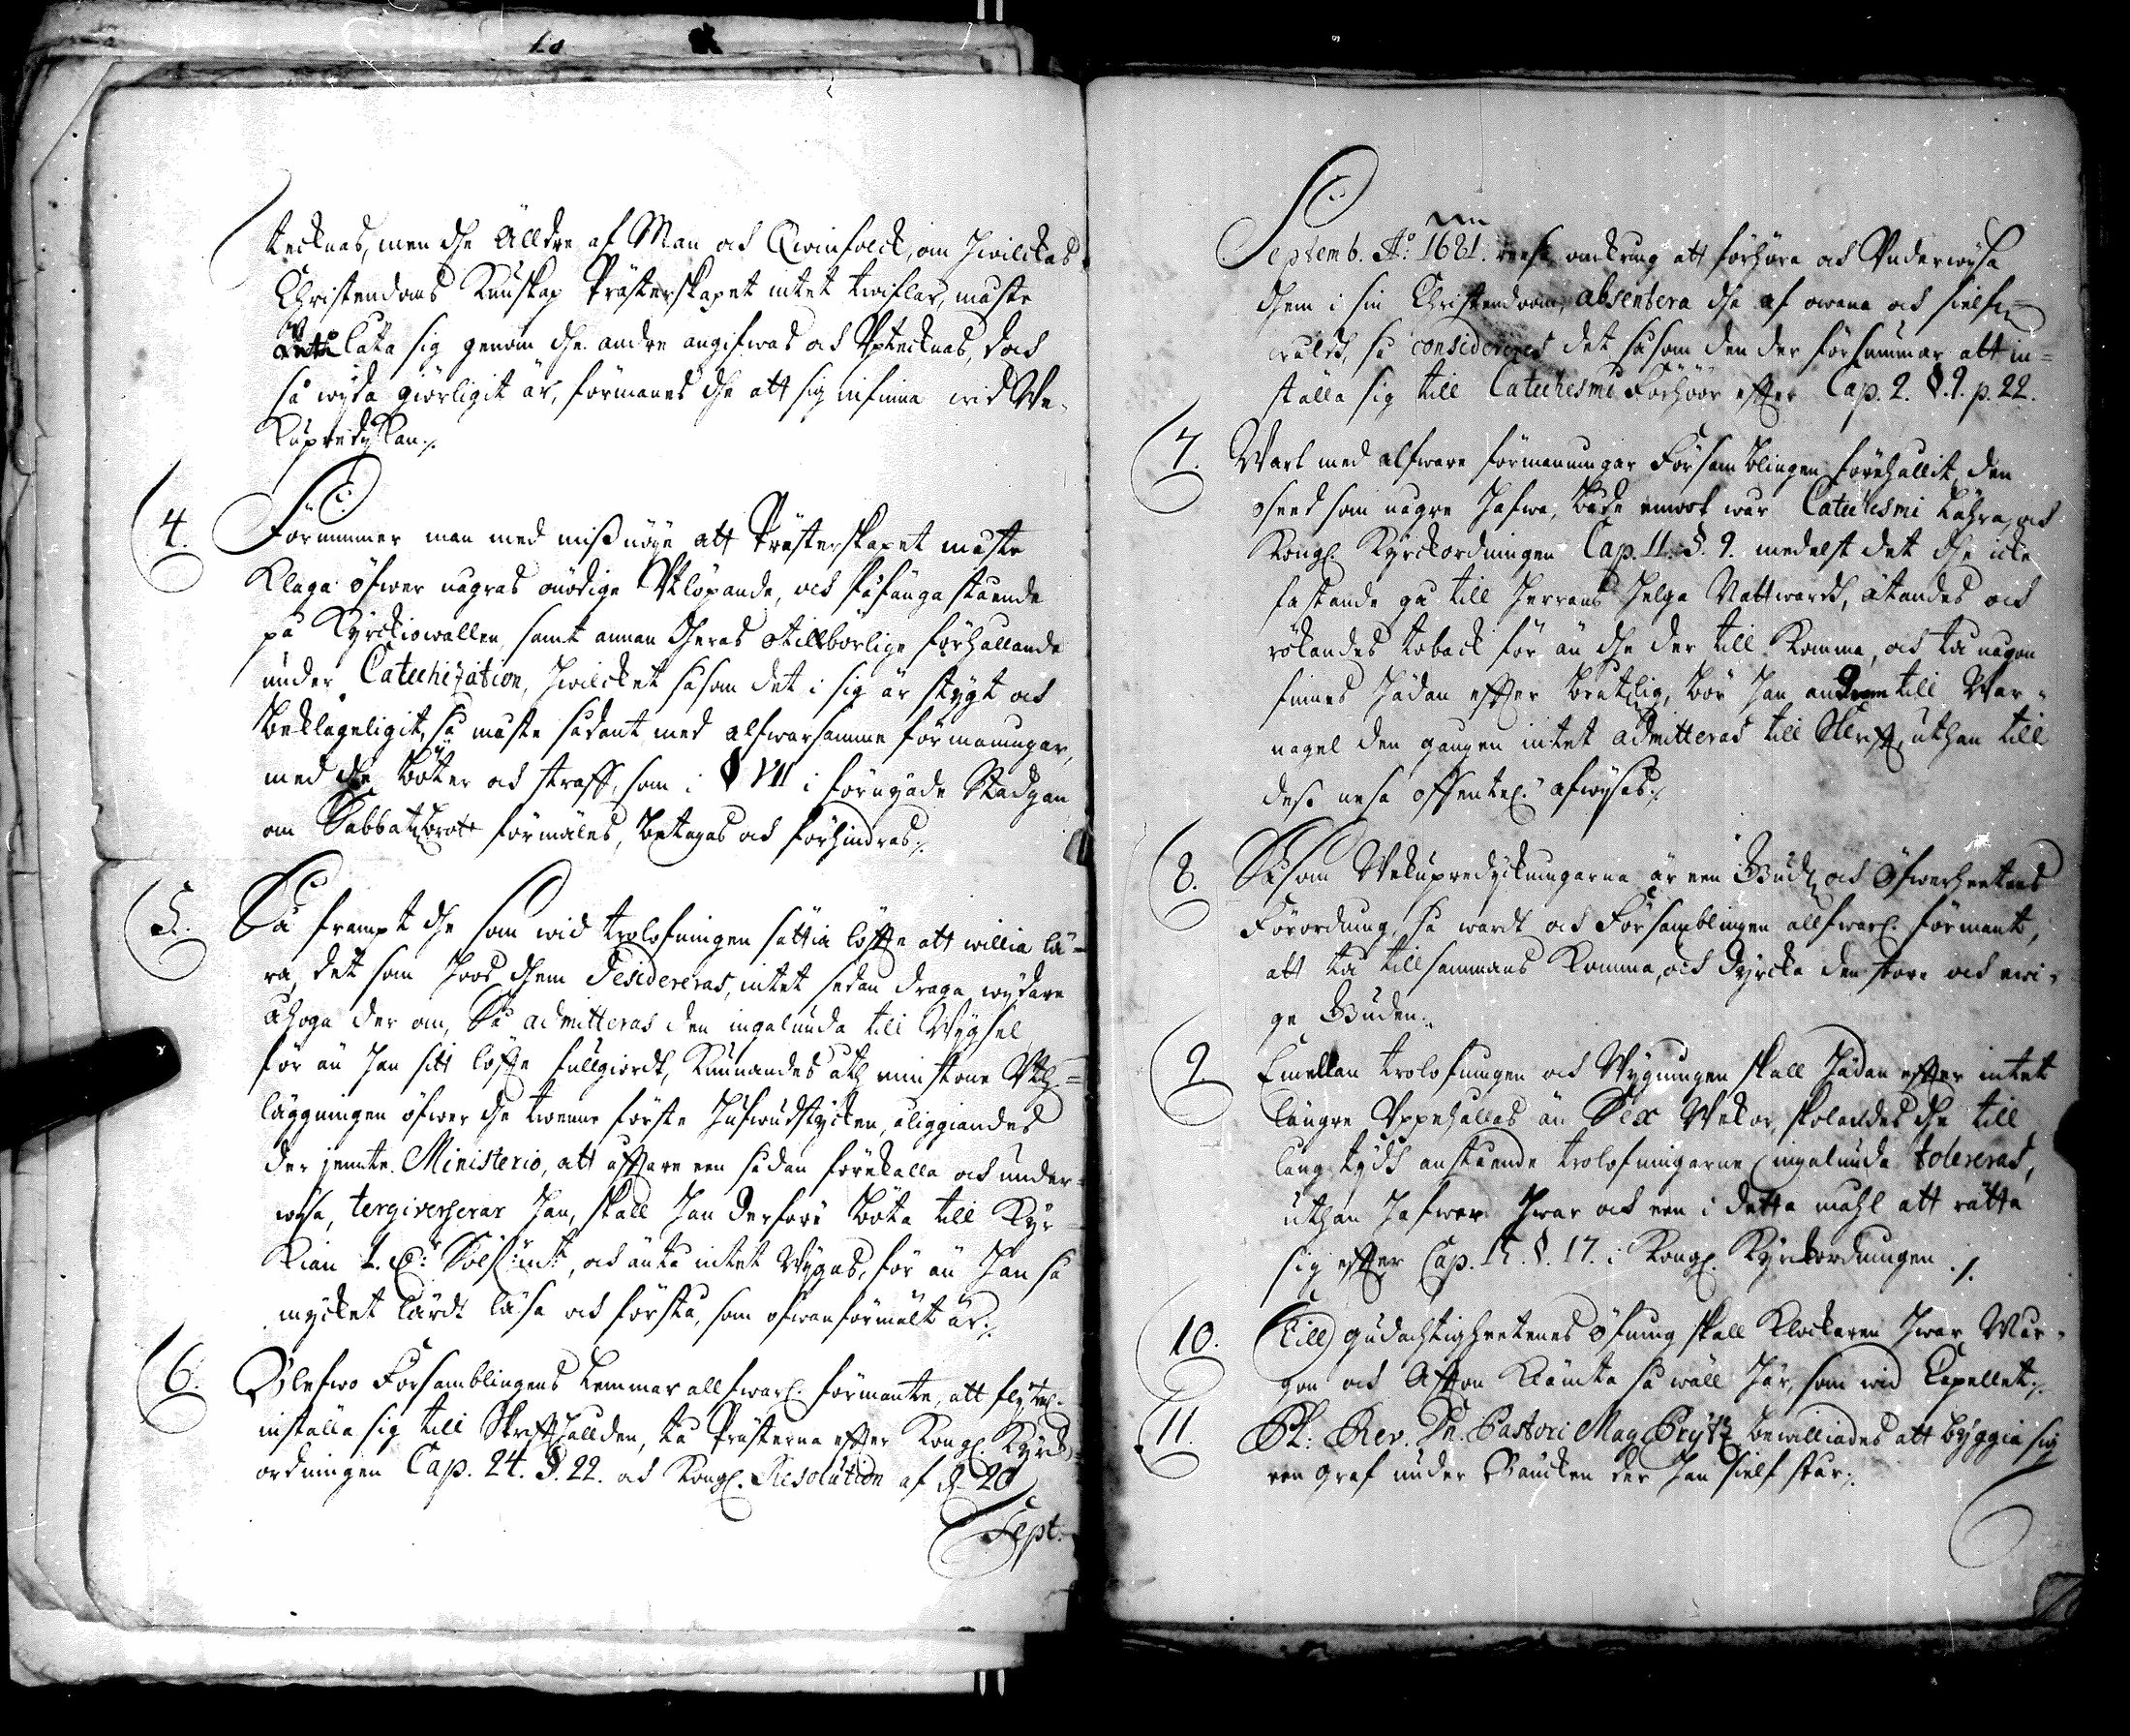 tecknas, men dhe Älldre af Man och Qwinfolck, om hwilckas
Christendoms Kunskap Prästerskapet intet twiflar, måste
låta sig genom dhe andre angifwas och Vptecknas, doch
så wyda giörligit är, förmanes dhe att sig infinna wid We-
kupredykan ./.
4. Förnimmer man med missnöge att Prästerskapet måste
Klaga öfwer någras onödige Vtlöpande, och fåfänga stående
på Kyrckiowallen, samt annan dheras otillbörlige förhållande
under Catechization, hwilcket såsom det i sig är stygt och
beklageligit, så måste sådant med alfwarsamme förmaningar,
med dhe böter och straff, som i § VII i förnyade Stadgan
om Sabbatzbrott förmäles, betagas och förhindras ./.
5. Så frampt dhe som wid trolofningen sättia löffte att willia lä-
ra, det som hoos dhem desidereras, intet sedan draga wydare
åhoga der om, Så admitteras den ingalunda till Wygsel
för än han sitt löffte fullgiordt, Kunnandes åth minstone Vth-
läggningen öfwer dhe twenne förste hufwudstycken, åliggiandes
der jemte Ministerio, att offtare een sådan förekalla och under-
wysa, tergiverserar han, skall han derföre böta till Kyr-
kian 1. D:r Sölf:r m:t, och ändå intet Wygas, för än han så
mycket lärdt läsa och förstå, som ofwanförmält är ./.
6. Blefwo Församblingens Lemmar allfwarl. förmante, att flytel.
inställa sig till Skriffthållden, tå Prästerna effter Kongl. Kyrck-
ordningen Cap. 24. §. 22. och Kongl. Resolution af d. 20
Sept.
Septemb. A:o 1681. reesa omkring att förhöra och Vnderwysa
dhem i sin Christendom, absentera dhe af owana och sielfz-
wåld, så considereres det såsom den der försummar att in-
ställa sig till Catechesmi Förhöör effter Cap. 2. §. 9. p. 22.
7. Wart med alfware förmaningar Församblingen förehållit, den
oseed som någre hafwa, både emoot wår Catechesmi Lähra, och
Kongl. Kyrckordningen Cap. 11. §. 9. medelst det dhe icke
fastande gå till Herrans Helga Nattward, ätandes och
rökandes toback för än dhe der till Komma, och tå någon
finnes hädan effter bråtzlig, bör han androm till War-
nagel den gången intet admitteras till Skrifft, uthan till
dess nesa offentel. afwysas ./.
8. Såsom Wekupredyckningarna är een Gudz och Öfwerheetens
Förordning, så wardt och Församblingen allfwarl. förmant,
att tå tillsammans Komma, och dyrcka den store och ewi-
ge Guden ./.
9. Emellan trolofningen och Wygningen skall hädan effter intet
längre Vppehållas än Sex Wekor, skolandes dhe till
lång tydh anstående trolofningarne ingalunda tolereras,
uthan hafwer hwar och een i detta måhl att rätta
sig effter Cap. 15. §. 17. i Kongl. Kyrckordningen ./.
10. Till gudachtigheetenes öfning skall Klockaren hwar Mår-
gon och Affton Klämta så wäll här, som wid Capellet ./.
11. Pl: Rev. Dn. Pastori Mag Prytz bewilliades att byggia sig
een graf under Bäncken der han sielf står ./.